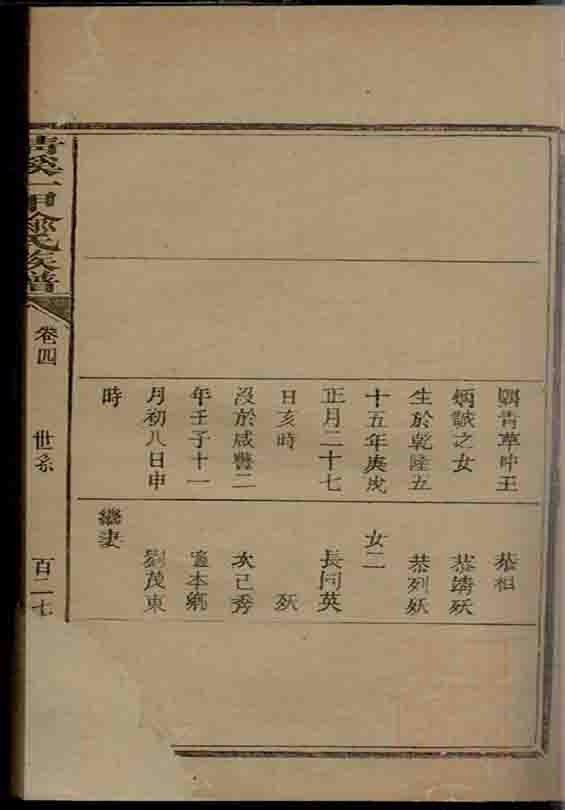 青草冲王
炳誠之女
生於乾隆五
十五年庚戌
正月二十七
日亥時
沒於咸豐二
年壬子十一
月初八日申
時
恭相
恭靖殀
恭列殀
女二
長同英
殀
次己秀
適本鄉
劉茂東
繼
一甲 氏族譜
卷四
世系
百二七